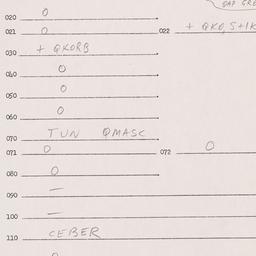 020 O
021 O 022 + QKO, S+IK
030 + QKORB
040 O
050 O
060 O
070 TUN QMASC
071 O 072 O
080 O
090 —
100 —
110 CEBER